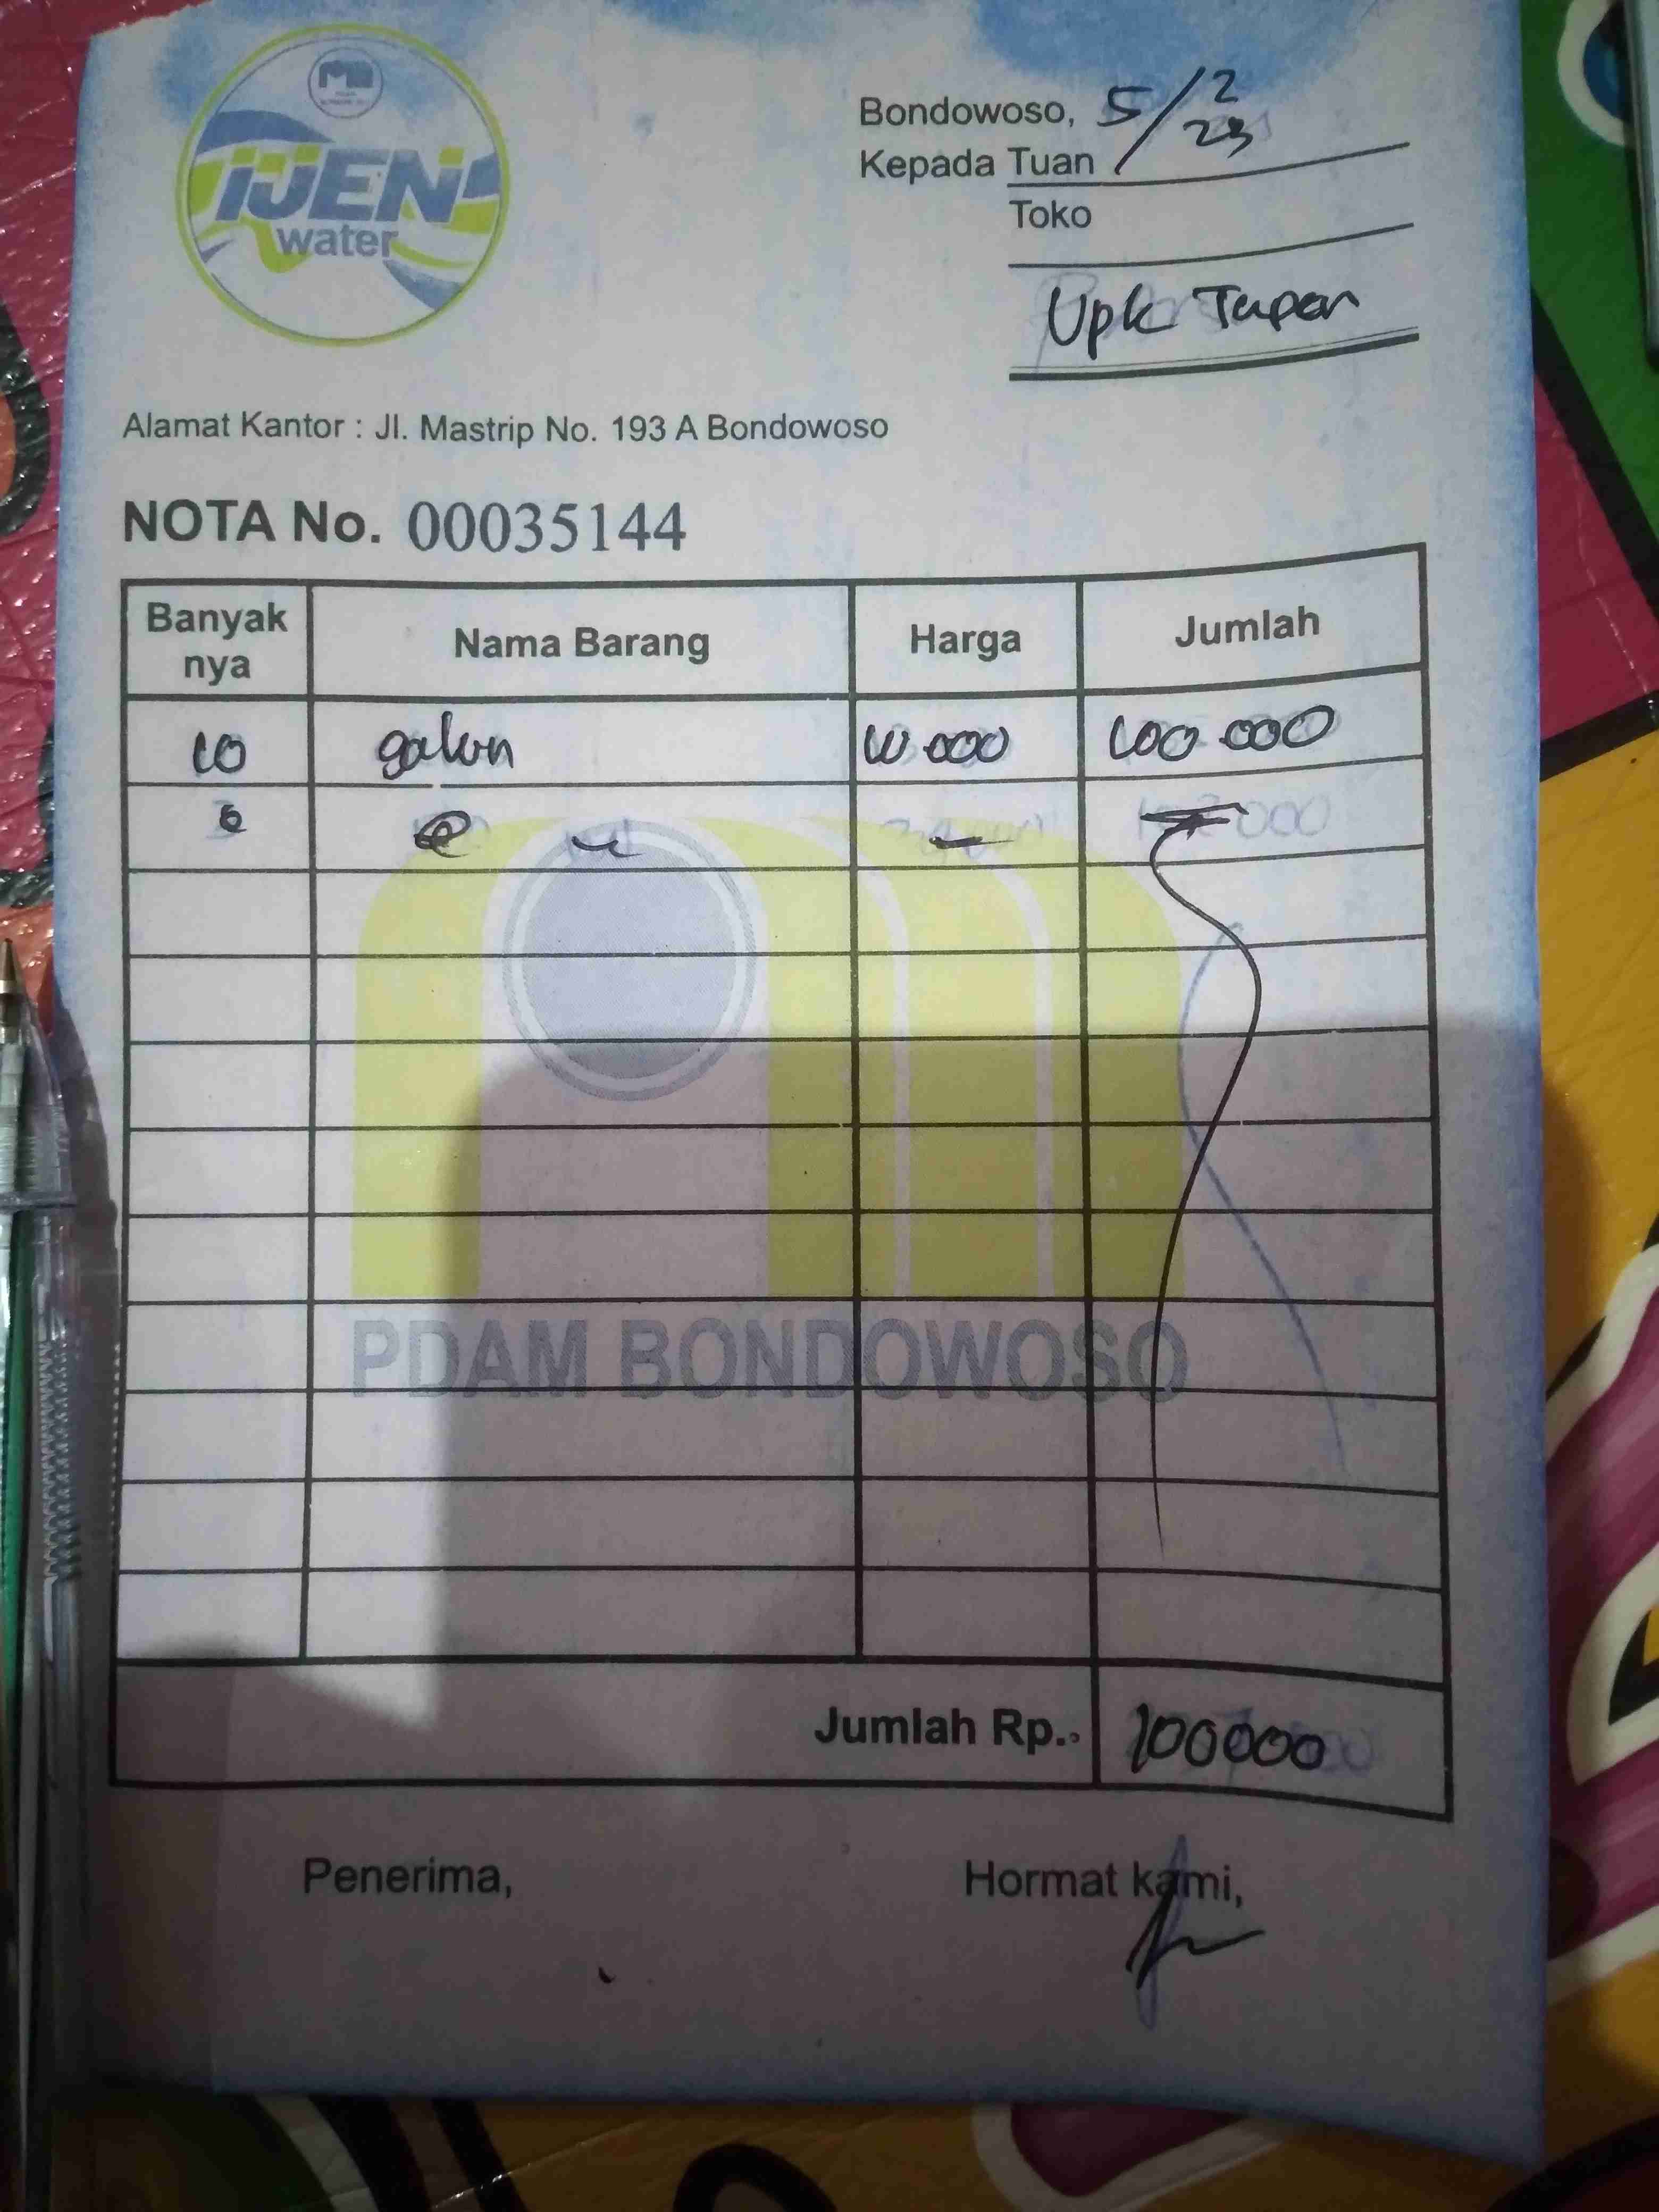 IJEN
water
Bondowoso, 5/2 23
Kepada Tuan
Toko
Upk Tapen
Alamat Kantor : Jl. Mastrip No. 193 A Bondowoso
NOTA No. 00035144
Banyak nya Nama Barang Harga Jumlah
10 galon 10.000 100.000
PDAM BONDOWOSO
Jumlah Rp. 100000
Penerima, Hormat kami,